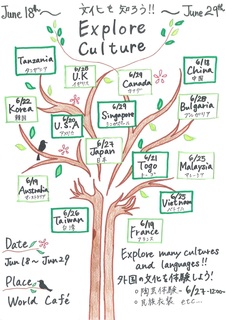 June 18~ → June 29th
文化を知ろう!!
Explore
Culture
Tanzania
タンザニア
6/28
U.K
イギリス
6/29
Canada
カナダ
6/18
China
中国
6/22
Korea
韓国
6/20
U.S.A
アメリカ
6/29
Singapore
シンガポール
6/28
Bulgaria
ブルガリア
6/27
Japan
日本
6/21
Togo
トーゴ
6/25
Malaysia
マレーシア
6/19
Australia
オーストラリア
6/25
Vietnam
ベトナム
6/26
Taiwan
台湾
6/19
France
フランス
Date
Jun 18 ~ Jun 29
Place
World Café
Explore many cultures
and languages!!
外国の文化を体験しよう!
6/27-12:00-
民族衣装 etc...